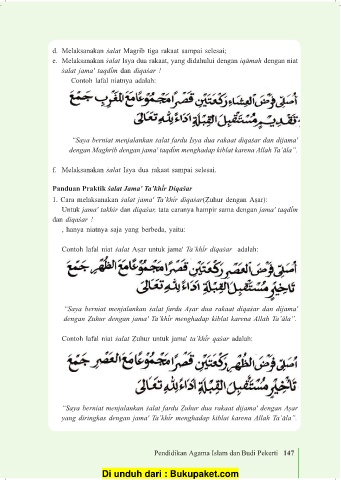 d. Melaksanakan śalat Magrib tiga rakaat sampai selesai;
e. Melaksanakan śalat Isya dua rakaat, yang didahului dengan iqāmah dengan niat
śalat jama' taqdīm dan diqaśar !
Contoh lafal niatnya adalah:
أُصَلِّى فَرْضَ الْعِشَاءِ رَكْعَتَيْنِ قَصْرًا مَجْمُوْعًا مَعَ الْمَغْرِبِ جَمْعَ
تَقْدِيْمٍ مُسْتَقْبِلَ الْقِبْلَةِ أَدَاءً لِلّٰهِ تَعَالَى
"Saya berniat menjalankan salat fardu Isya dua rakaat diqasar dan dijama'
dengan Maghrib dengan jama' taqdim menghadap kiblat karena Allah Ta'āla".
f. Melaksanakan salat Isya dua rakaat sampai selesai.
Panduan Praktik śalat Jama' Ta'khīr Diqaśar
1. Cara melaksanakan salat jama' Ta'khīr diqaśar(Zuhur dengan Aṣar):
Untuk jama' takhir dan diqaśar, tata caranya hampir sama dengan jama' taqdīm
dan diqaśar !
, hanya niatnya saja yang berbeda, yaitu:
Contoh lafal niat śalat Aṣar untuk jama' Ta'khīr diqaśar adalah:
أُصَلِّى فَرْضَ الْعَصْرِ رَكْعَتَيْنِ قَصْرًا مَجْمُوْعًا مَعَ الظُّهْرِ جَمْعَ
تَأْخِيْرٍ مُسْتَقْبِلَ الْقِبْلَةِ أَدَاءً لِلّٰهِ تَعَالَى
"Saya berniat menjalankan salat fardu Aṣar dua rakaat diqasar dan dijama'
dengan Zuhur dengan jama' Ta'khīr menghadap kiblat karena Allah Ta'āla".
Contoh lafal niat śalat Zuhur untuk jama' ta'khīr qaśar adalah:
أُصَلِّى فَرْضَ الظُّهْرِ رَكْعَتَيْنِ قَصْرًا مَجْمُوْعًا مَعَ الْعَصْرِ جَمْعَ
تَأْخِيْرٍ مُسْتَقْبِلَ الْقِبْلَةِ أَدَاءً لِلّٰهِ تَعَالَى
"Saya berniat menjalankan salat fardu Zuhur dua rakaat dijama' dengan Aṣar
yang diringkas dengan jama' Ta'khīr menghadap kiblat karena Allah Ta'āla".
Pendidikan Agama Islam dan Budi Pekerti 147
Di unduh dari : Bukupaket.com